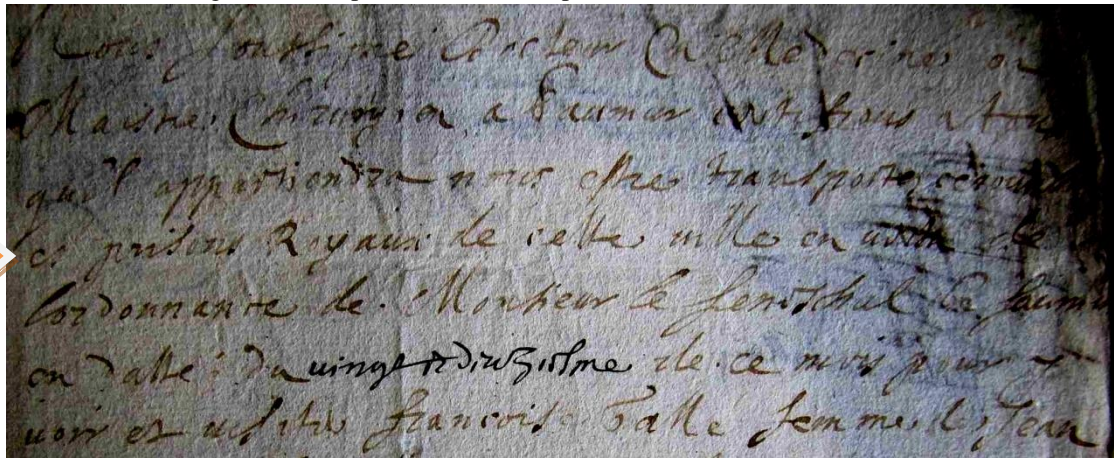 Nous soubsigné Docteur En Medecine et
Maistre Chirurgien a Saumur certifions a tous
qu'il appartiendra nous estre transporté
es prisons Royaux de cette ville en de
lordonnance de Monsieur le seneschal de Saumur
en datte du ce mois pour
voir et visiter françoise femme de Jean